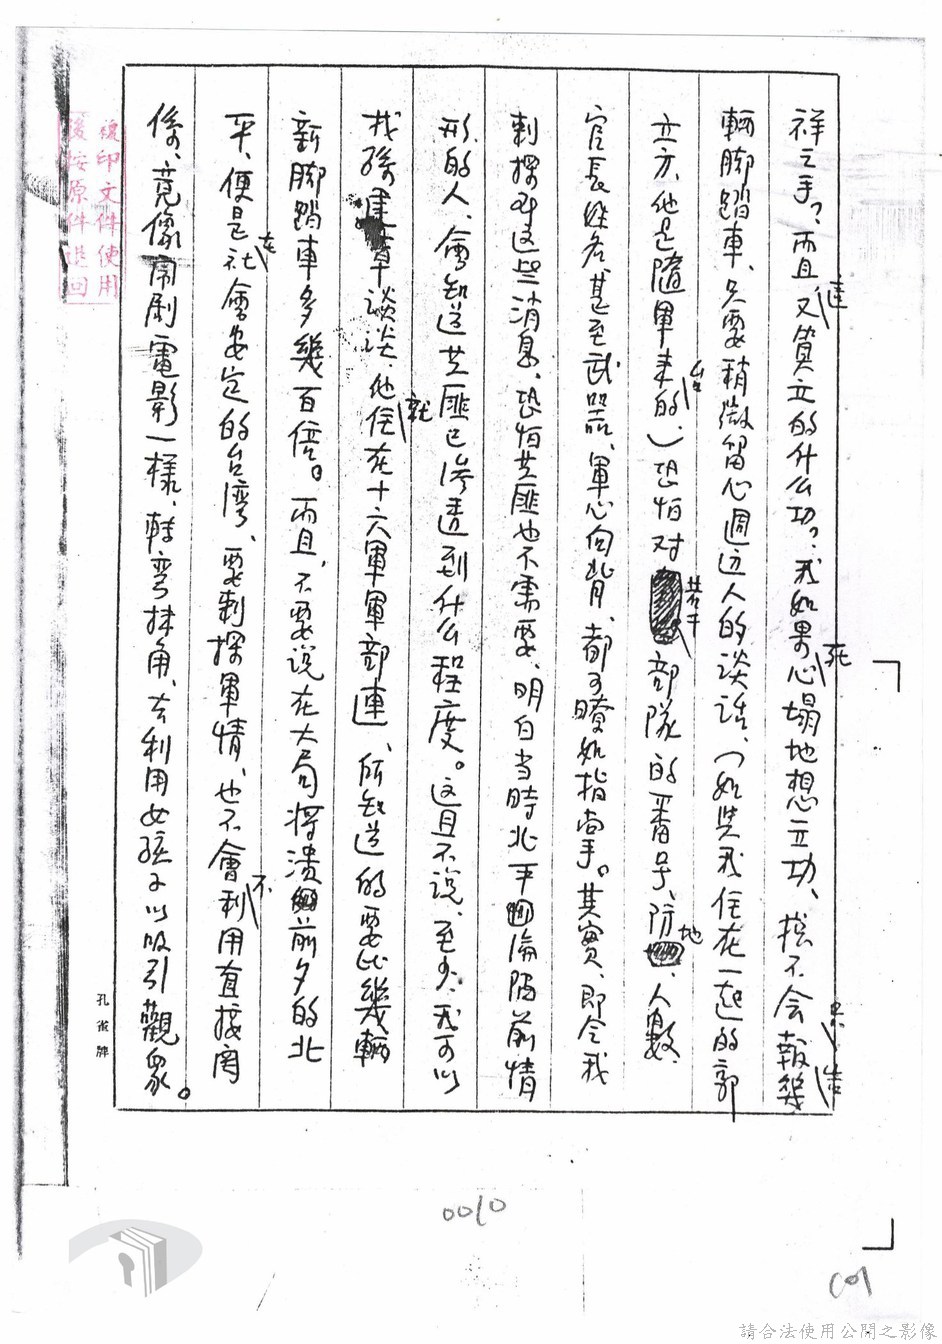 祥之手？而且又算立的什么功？我如果死心塌地想立功、擋不会只報告幾
輛脚踏車、只要稍微留心週边人的谈话、（如與我住在一起的郭
立方、他是隨軍来台的、）恐怕对若干部隊的番号、防地、人數、
官長姓名、甚至武器、軍心向背、都可瞭如指掌。其實、即令我
刺探对这些消息、恐怕共匪也不需要、明白当時北平淪陷前情
形的人、會知道共匪已渗透到什么程度。这且不说、至少、我可以
找孫建章谈谈、他就住在十六軍軍部連、所知道的要比幾輛
新脚踏車多幾百倍。而且、不要说在大局将潰前夕的北
平、便是在社會安定的台湾、要刺探軍情、也不會不利用直接関
係、竟像閙剧電影一樣、轉弯抹角、去利用女孩子以吸引觀眾。
複印文件使用
後按原件退回
孔雀牌
0010
001
請合法使用公開之影像